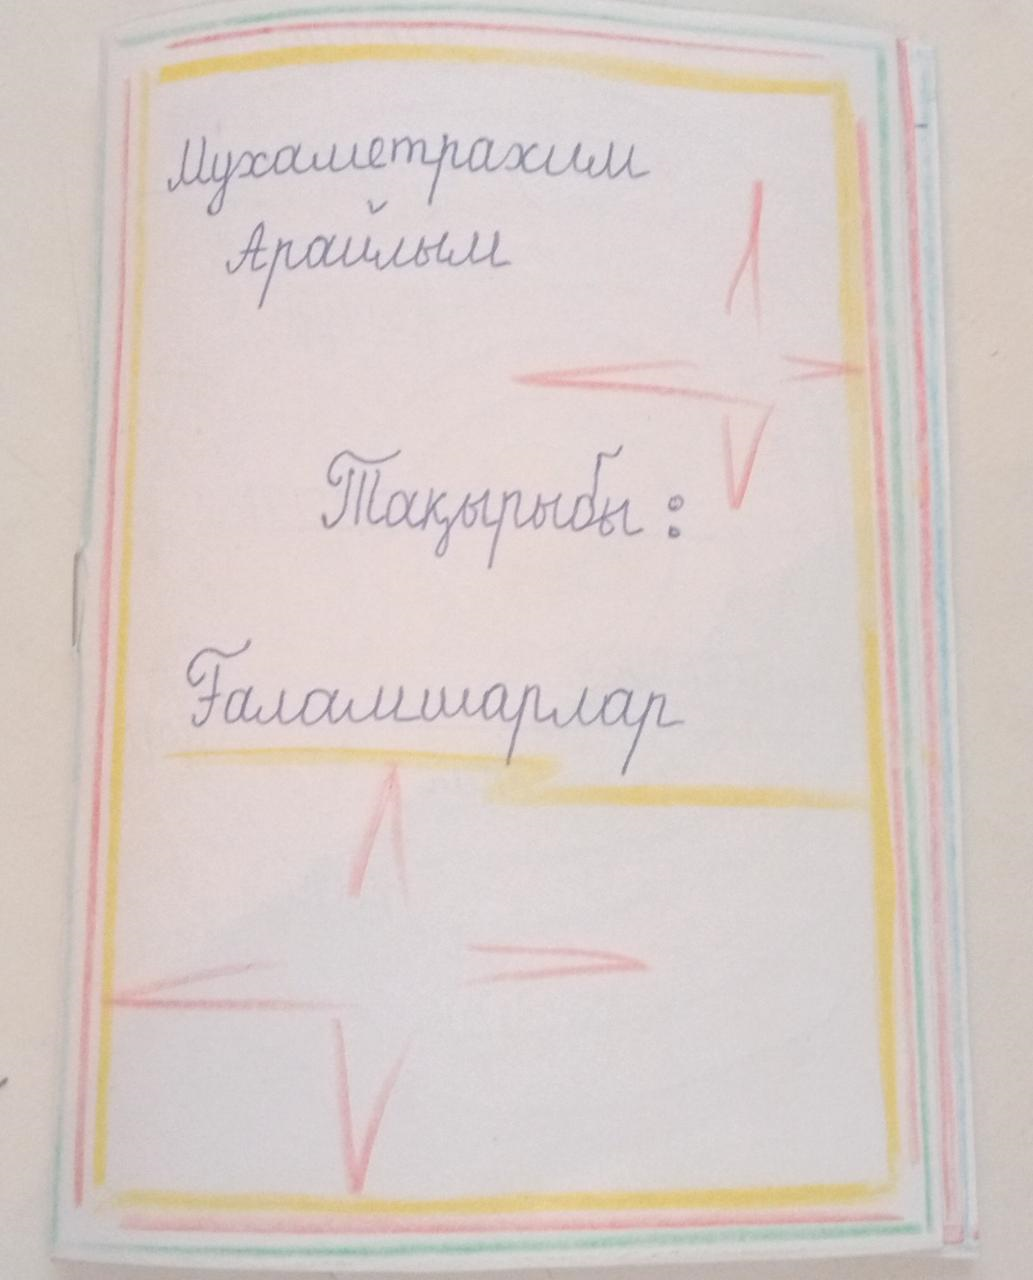 Мухаметрахим
Арайлым
Тақырыбы :
Ғаламшарлар